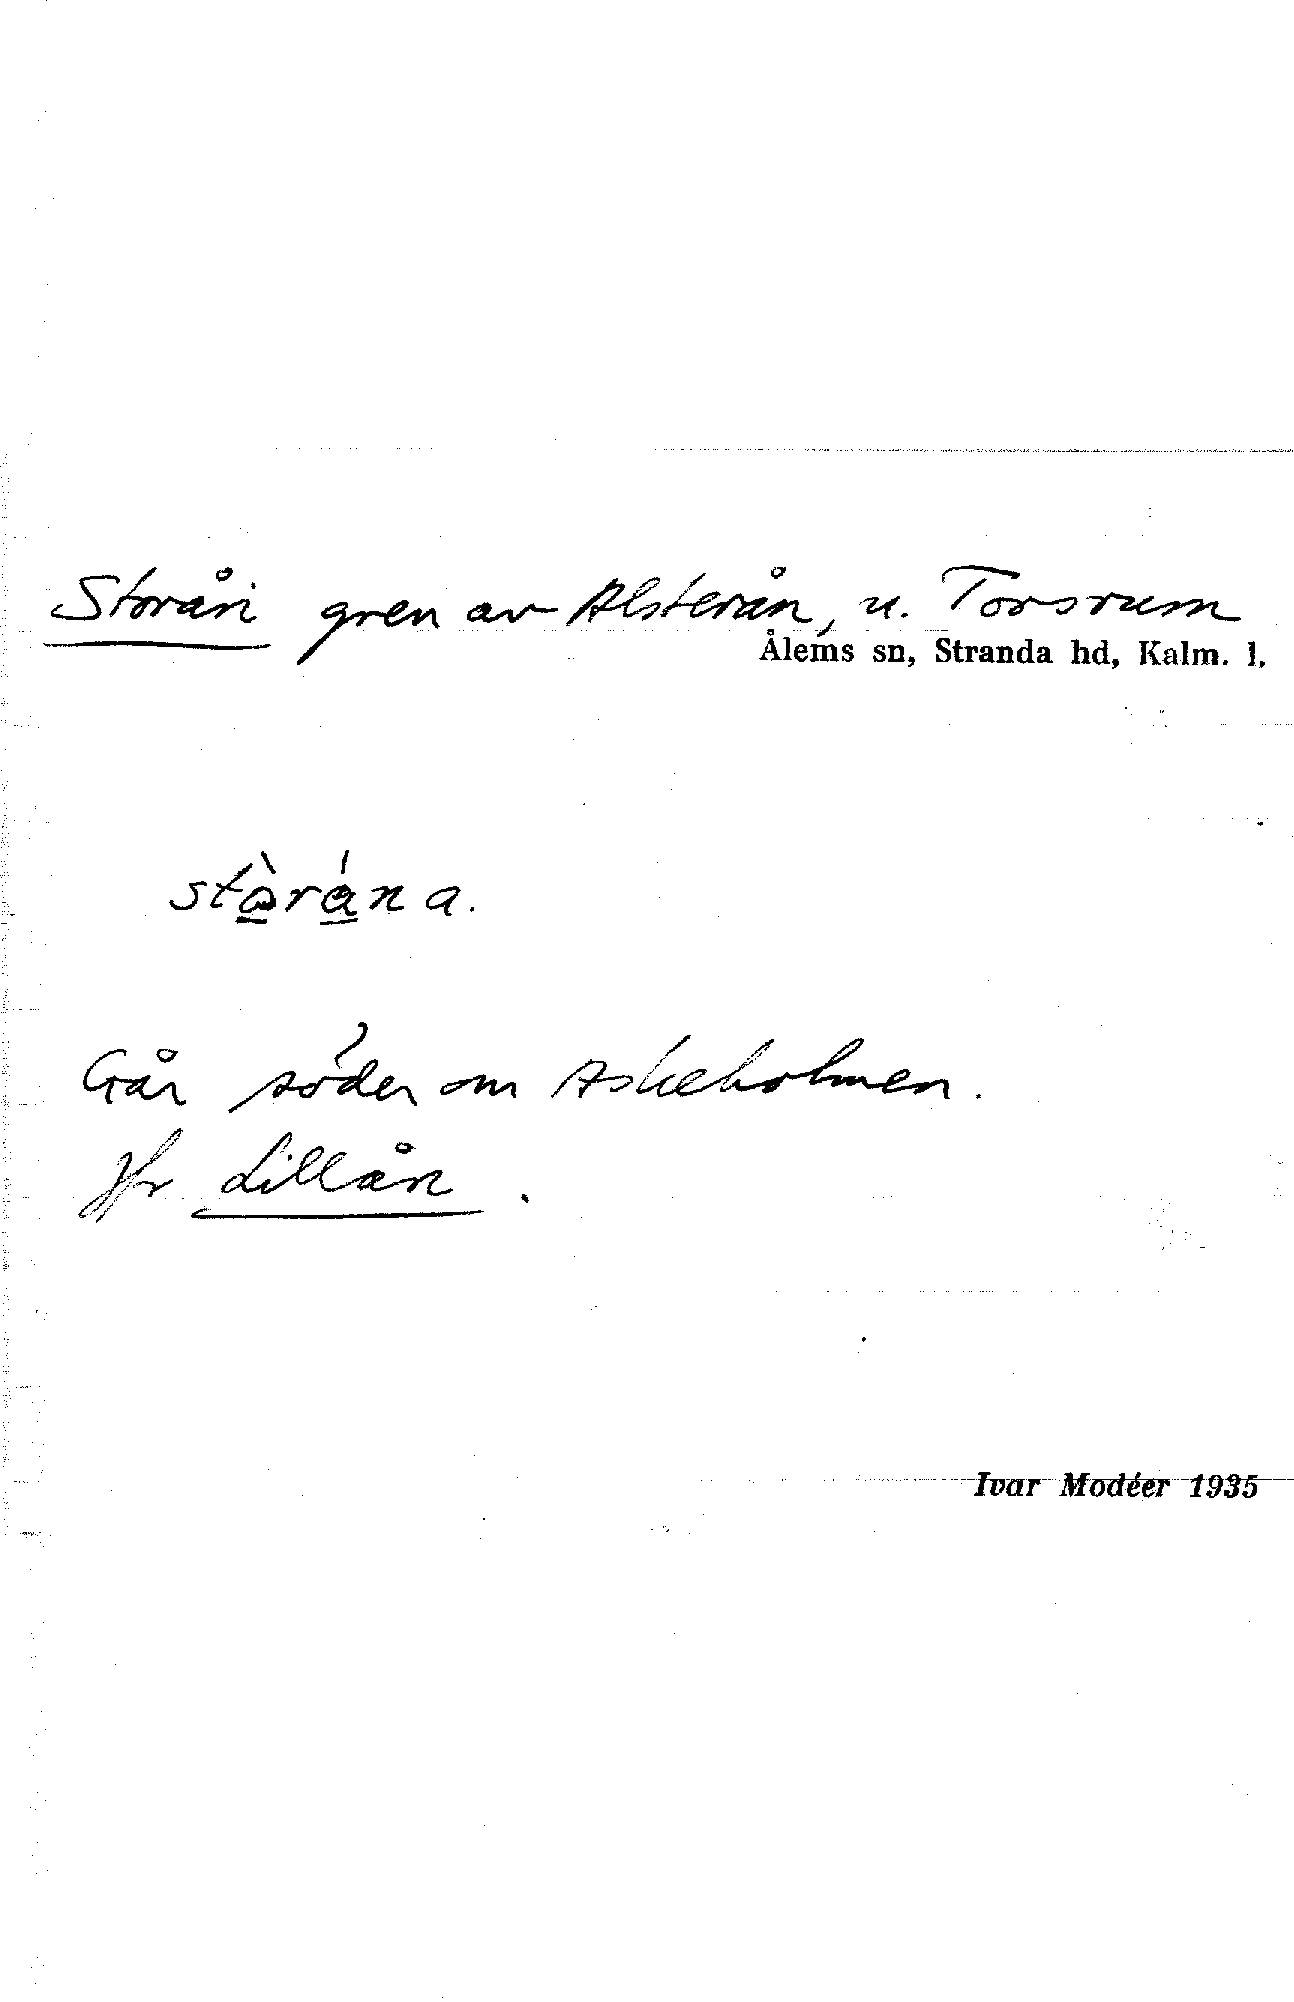 Storån gren av Alsterån, u. Torsrum
Ålems sn, Stranda hd, Kalm. l.
Går söder om Askeholmen.
Jfr Lillån.
Ivar Modéer 1935